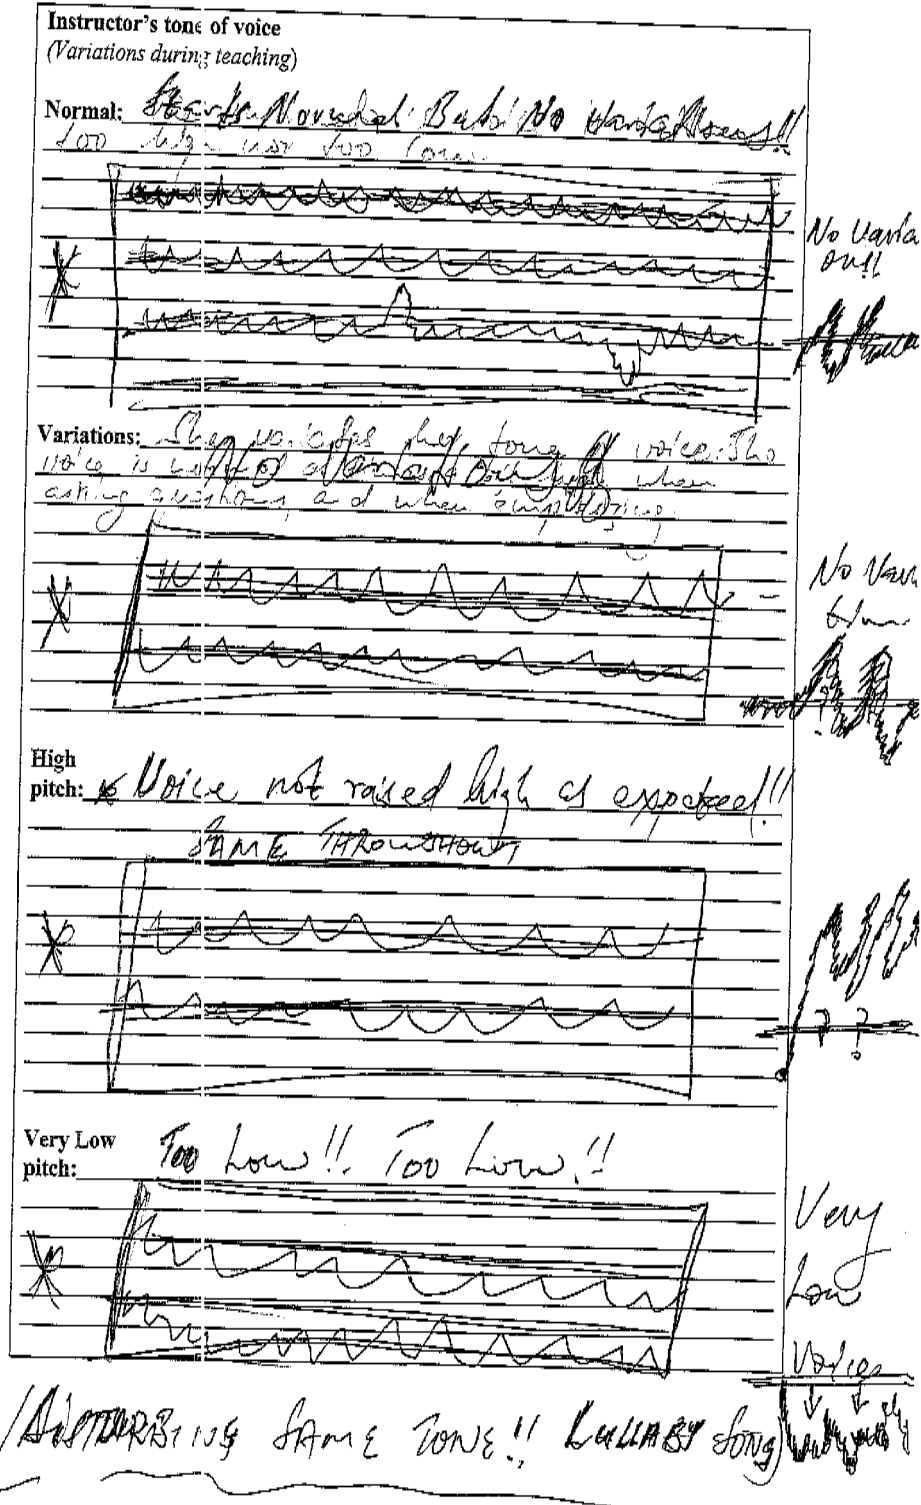 Instructor's tone of voice
(Variations during teaching)
Normal: Normal But No Variations!!
too high nor too low
No Varia
on!!
Variations: She varies her tone of voice. The
voice is when
asking questions and when
No Vari
High
pitch: Voice not raised high as expected!!
SAME THROUGHOUT
? ?
Very Low
pitch: Too Low!! Too Low!!
Very
Low
Voices
DISTURBING SAME TONE!! LULLABY SONG